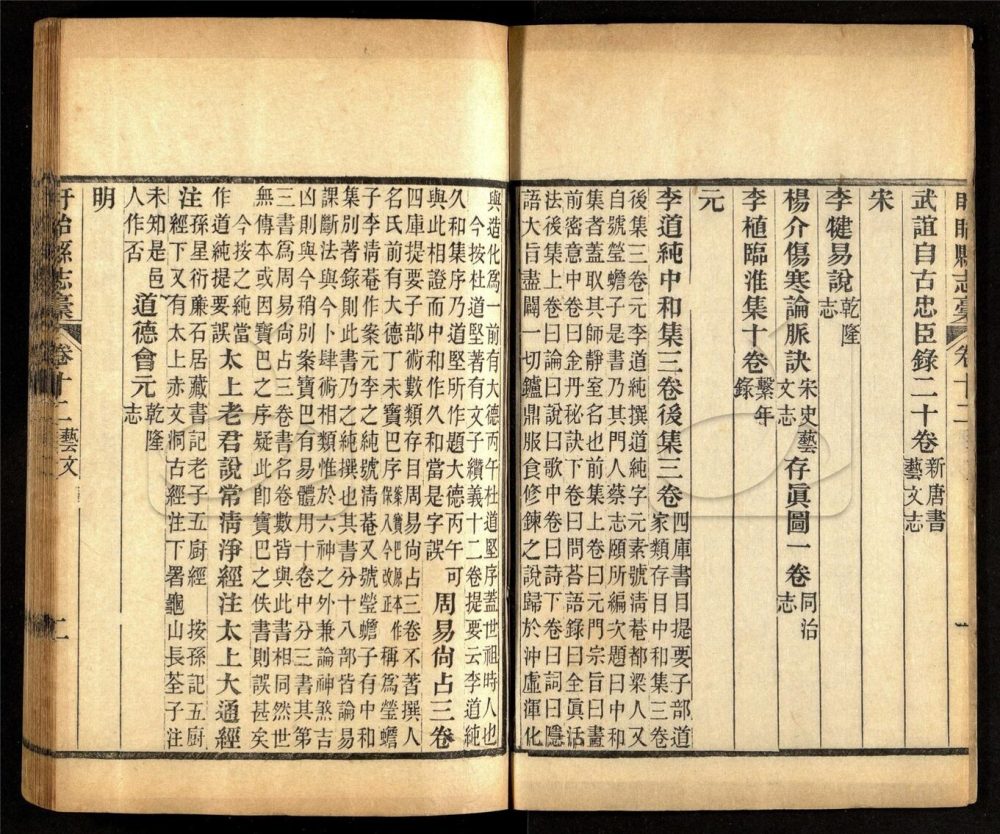 盱眙縣志藁 卷十二
武誼自古忠臣錄二十卷 新唐書藝文志
宋
李犍易說 乾隆志
楊介傷寒論脈訣 宋史藝文志 存眞圖一卷 同治志
李植臨淮集十卷 繫年錄
元
李道純中和集三卷後集三卷 四庫書目提要子部道家類存目中和集三卷
後集三卷元李道純撰道純字元素號清菴都梁人又
自號瑩蟾子是書乃其門人蔡志頤所編次題曰中和
集者蓋取其師靜室名也前集上卷曰元門宗旨曰畫
前密意中卷曰金丹秘訣下卷曰問荅語錄曰全眞活
法後集上卷曰論曰說曰歌中卷曰詩下卷曰詞曰隱
語大旨盡闢一切鑪鼎服食修鍊之說歸於沖虛渾化
與造化爲一前有大德丙午杜道堅序蓋世祖時人也
今按杜道堅著有文子纘義十二卷提要云李道純
久和集序乃道堅所作題大德丙午可
與此相證而中和作久和當是字誤 周易尙占三卷
四庫提要子部術數類存目周易尙占三卷不著撰人
名氏前有大德丁未寶巴序 案寶巴原本作保八今改正 稱爲瑩蟾
子李清菴作案元李之純號清菴又號瑩蟾子有中和
集別著錄則此書乃之純撰也其書分十八部皆論易
課斷法與今卜肆術相類惟於六神之外兼論神煞吉
凶則與今稍別案寶巴有易體用一卷中分三書其第
三書爲周易尙占三卷書名卷數皆與此書相同然世
無傳本或因寶巴之序疑此卽寶巴之佚書則誤甚矣
今按之純當作道純提要誤 太上老君說常清淨經注太上大通經
注 孫星衍廉石居藏書記老子五廚經 按孫記五廚
經下又有太上赤文洞古經注下署龜山長荃子注
未知是邑人作否 道德會元 乾隆志
明
盱眙縣志藁 卷十二 藝文 二